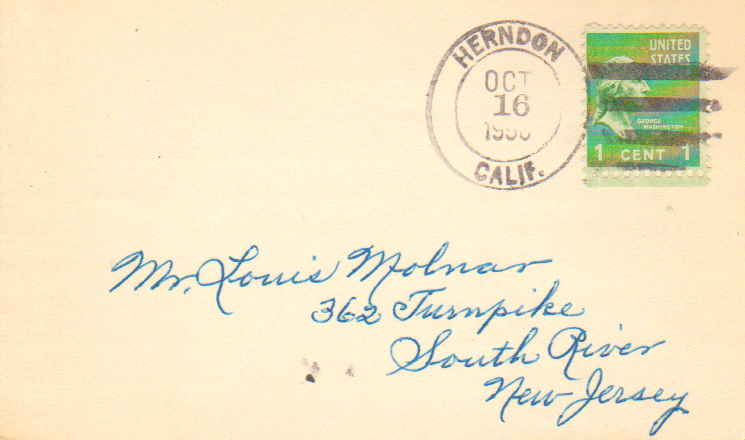 HERNDON
OCT
16
CALIF.
UNITED
STATES
GEORGE
WASHINGTON
1 CENT 1
Mr. Louis Molnar
362 Turnpike
South River
New Jersey